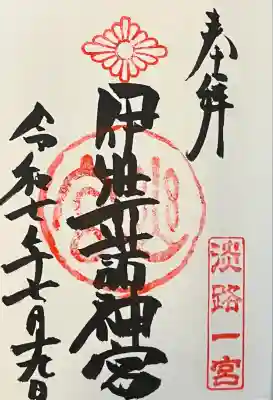 奉拝
淡路一宮
伊弉諾神宮
令和七年七月九日